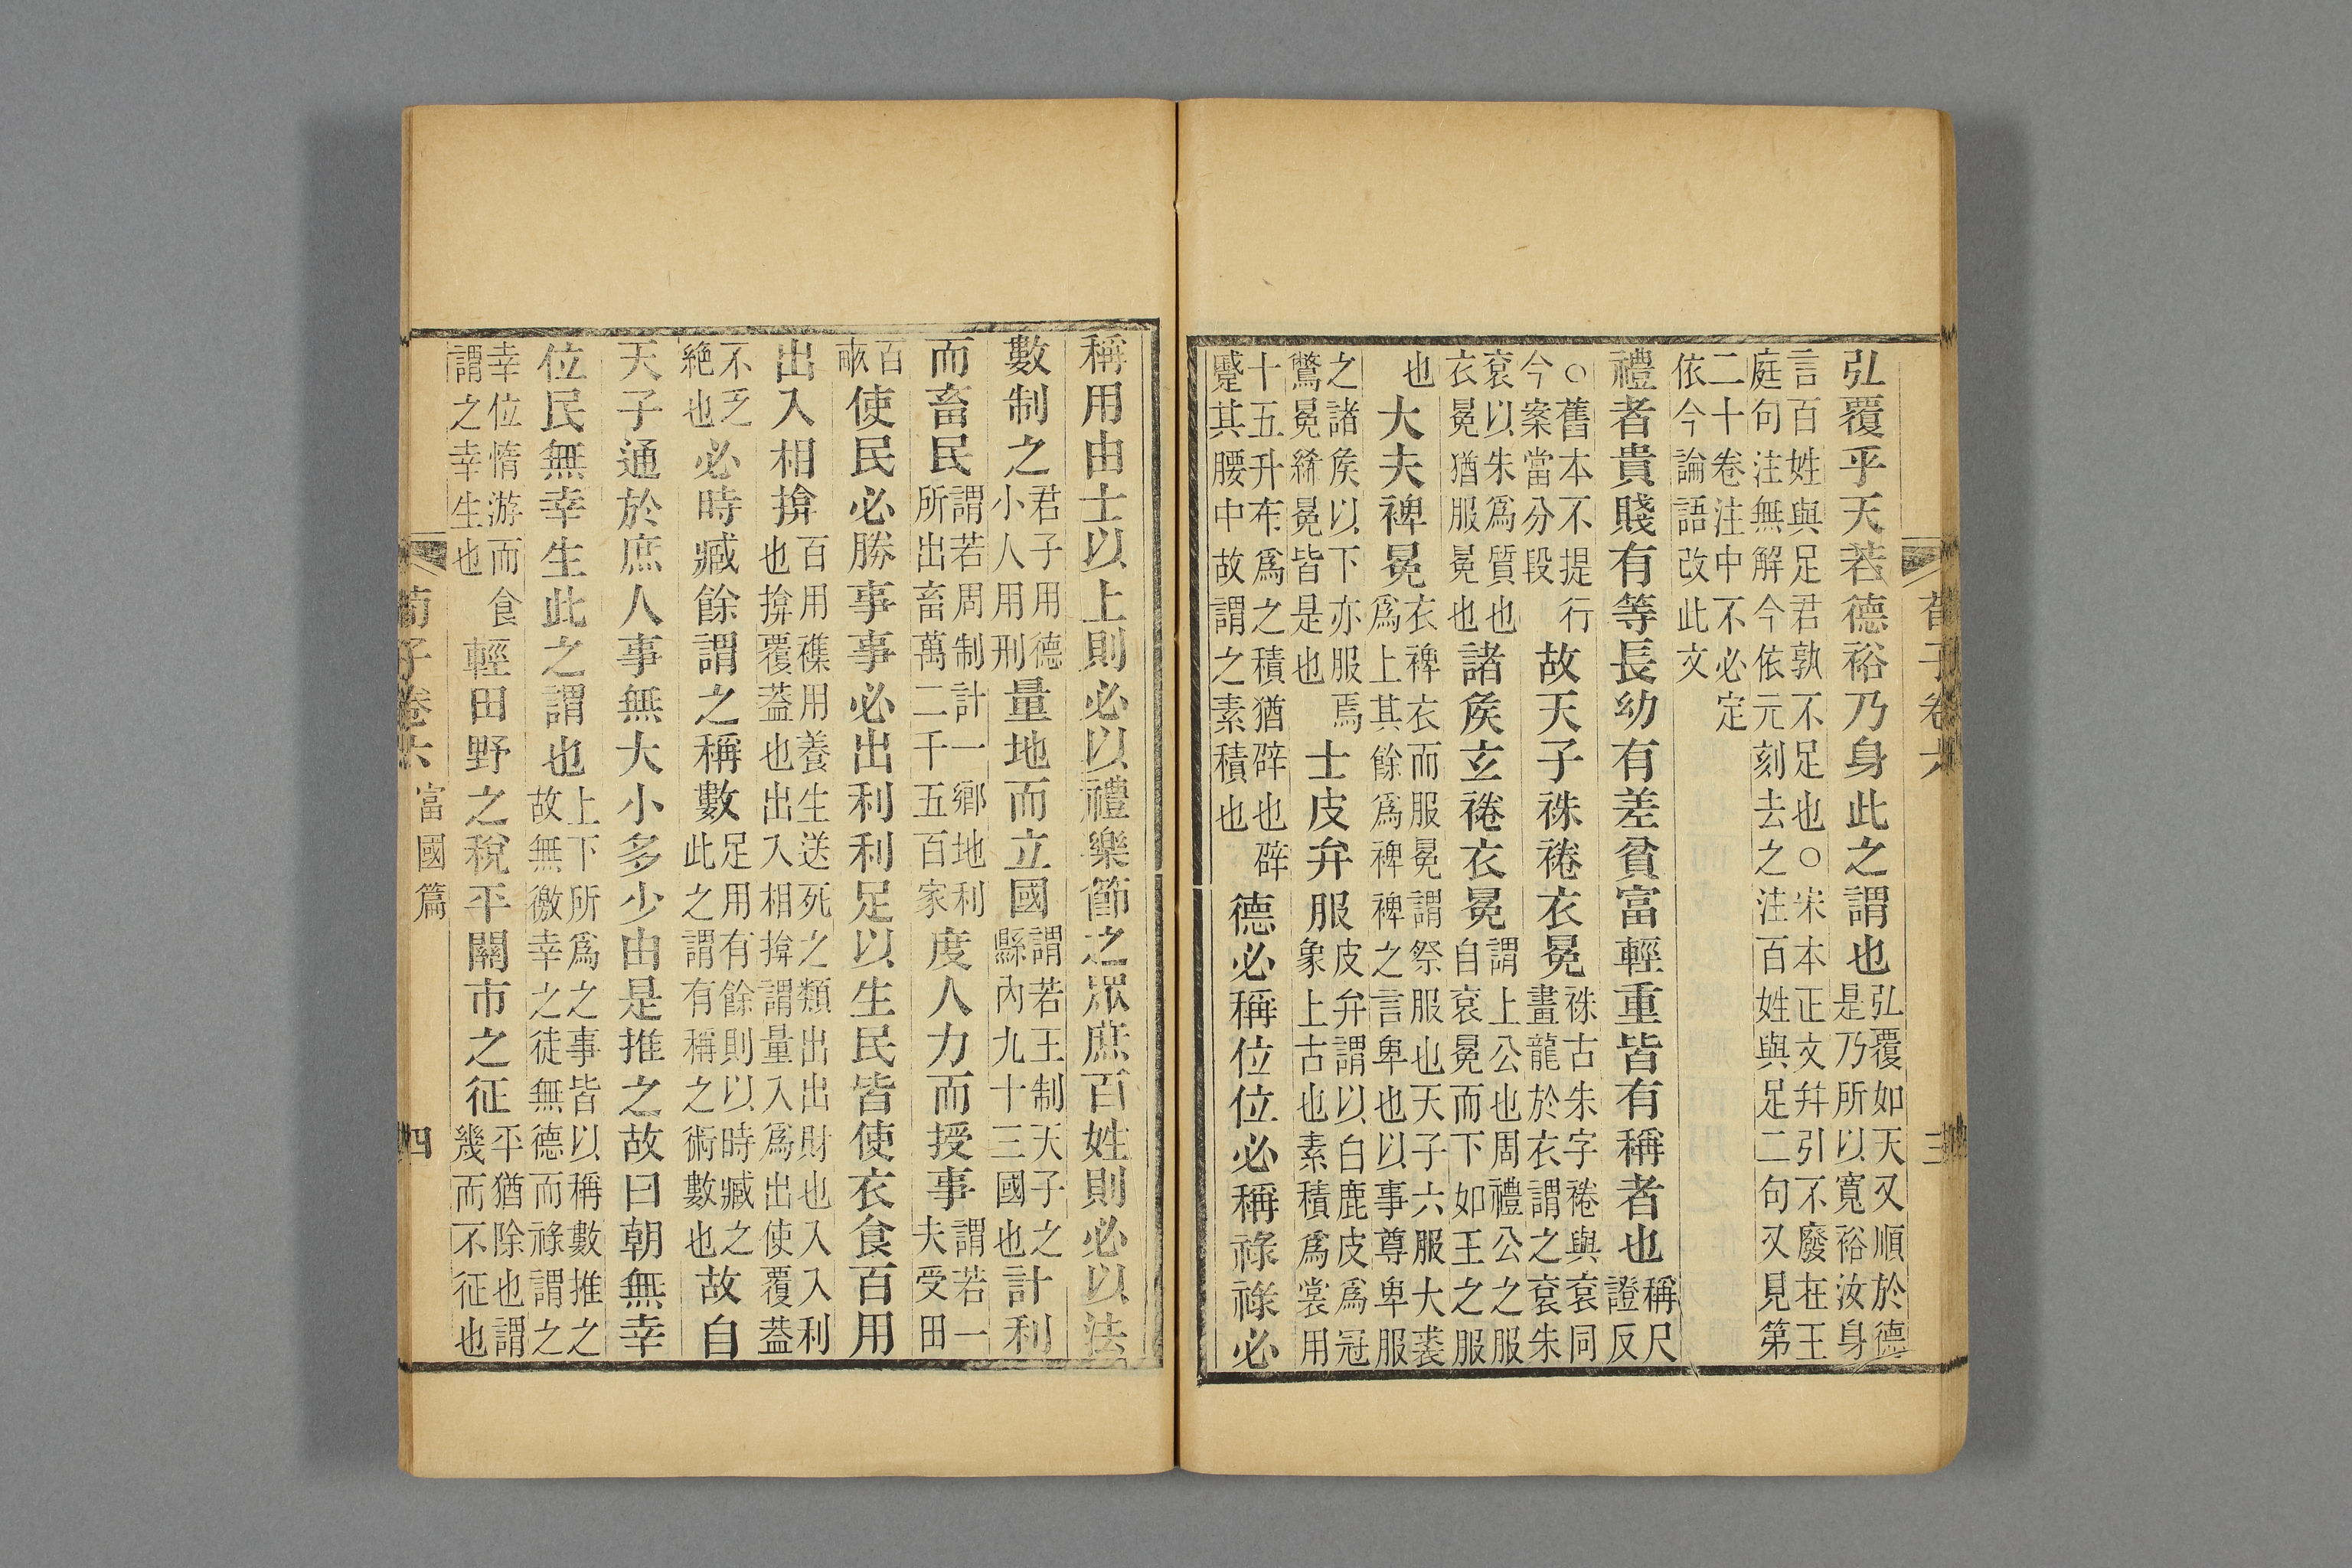 荀子卷六 三
弘覆乎天若德裕乃身此之謂也弘覆如天又順於德是乃所以寬裕汝身
言百姓與足君孰不足也○宋本正文幷引不廢在王庭句注無解今依元刻去之注百姓與足二句又見第
二十卷注中不必定依今論語改此文
禮者貴賤有等長幼有差貧富輕重皆有稱者也稱尺證反
○舊本不提行今案當分段故天子袾裷衣冕袾古朱字裷與袞同畫龍於衣謂之袞朱
袞以朱爲質也衣冕猶服冕也諸矦玄裷衣冕謂上公也周禮公之服自袞冕而下如王之服
也大夫裨冕衣裨衣而服冕謂祭服也天子六服大裘爲上其餘爲裨裨之言卑也以事尊卑服
之諸矦以下亦服焉鷩冕絺冕皆是也士皮弁服皮弁謂以白鹿皮爲冠象上古也素積爲裳用
十五升布爲之積猶辟也辟蹙其腰中故謂之素積也德必稱位位必稱祿祿必
稱用由士以上則必以禮樂節之眾庶百姓則必以法
數制之君子用德小人用刑量地而立國謂若王制天子之縣內九十三國也計利
而畜民謂若周制計一鄉地利所出畜萬二千五百家度人力而授事謂若一夫受田
百畝使民必勝事事必出利利足以生民皆使衣食百用
出入相揜百用襍用養生送死之類出出財也入入利也揜覆葢也出入相揜謂量入爲出使覆葢
不乏絶也必時臧餘謂之稱數足用有餘則以時臧之此之謂有稱之術數也故自
天子通於庶人事無大小多少由是推之故曰朝無幸
位民無幸生此之謂也上下所爲之事皆以稱數推之故無徼幸之徒無德而祿謂之
幸位惰游而食謂之幸生也輕田野之稅平關市之征平猶除也謂幾而不征也
荀子卷六 富國篇 四